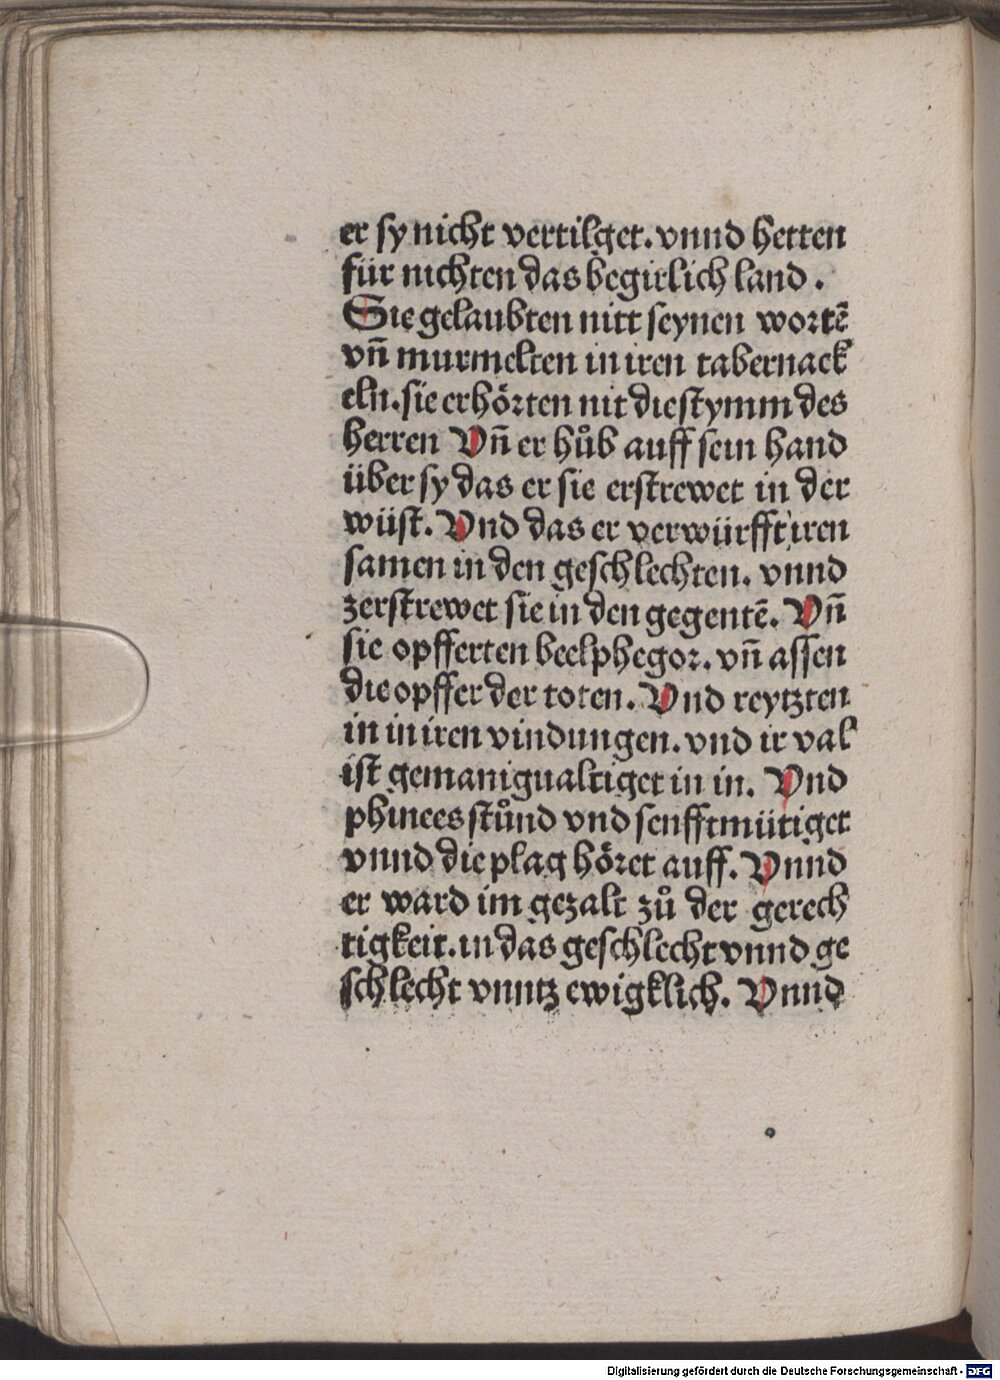 er sy nicht vertilget. vnnd hetten
für nichten das begirlich land .
Sie gelaubten nitt seynen wortē
vn̄ murmelten in iren tabernack
eln. sie erhörten nit die stymm des
herren Vn̄ er hůb auff sein hand
über sy das er sie erstrewet in der
wüst. Vnd das er verwürfft iren
samen in den geschlechten. vnnd
zerstrewet sie in den gegentē. Vn̄
sie opfferten beelphegor. vn̄ assen
die opffer der toten. Vnd reytzten
in in iren vindungen. vnd ir val
ist gemanigualtiget in in. Vnd
phinees stůnd vnd senfftmütiget
vnnd die plag höret auff. Vnnd
er ward im gezalt zů der gerech
tigkeit. in das geschlecht vnnd ge
schlecht vnntz ewigklich. Vnnd
Digitalisierung gefördert durch die Deutsche Forschungsgemeinschaft - DFG